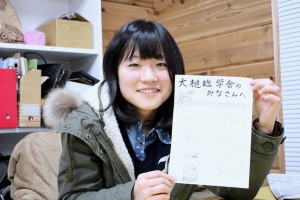 大槌臨学舎の
みなさんへ